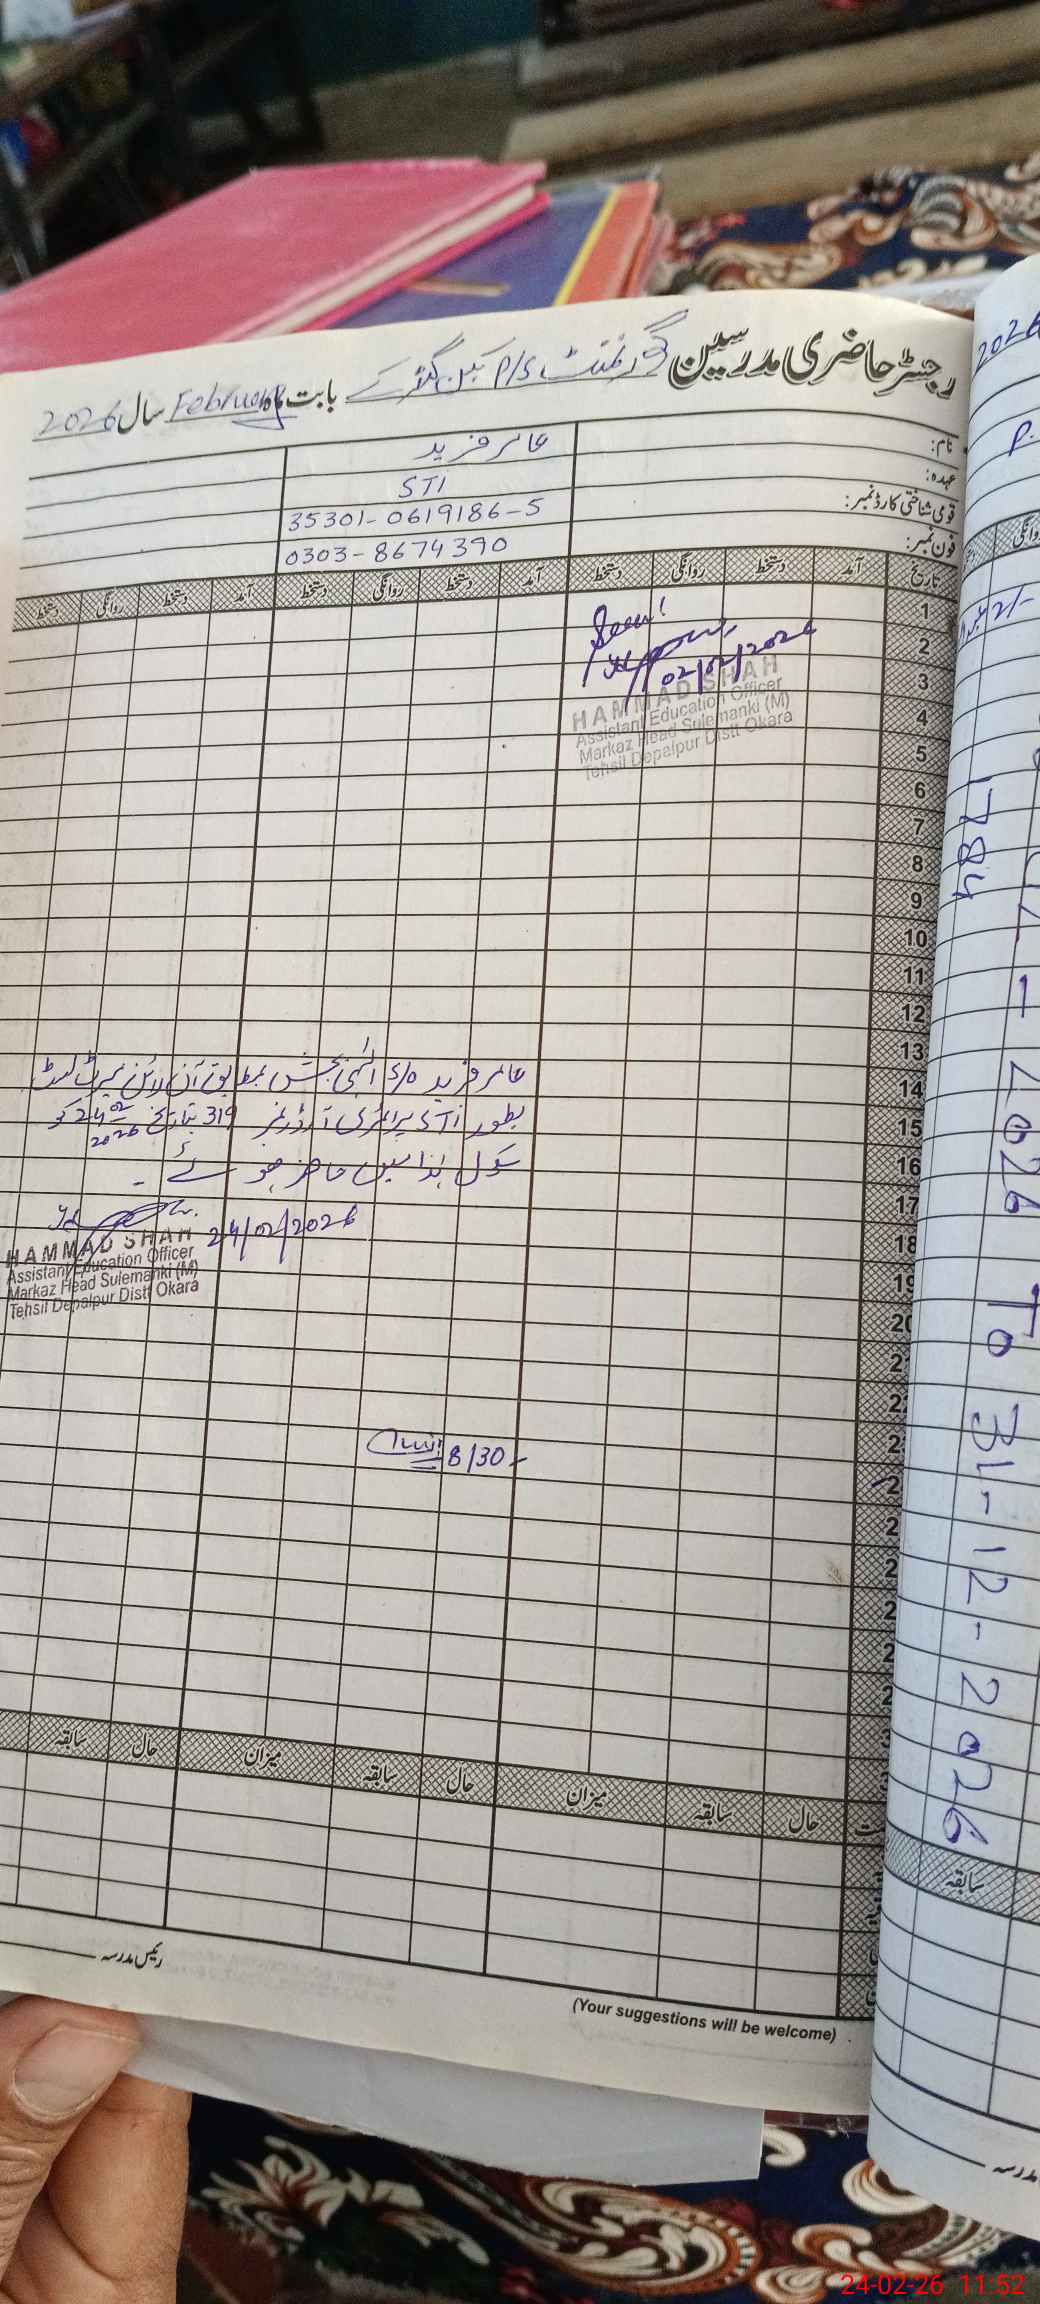 رجسٹر حاضری مدرسین گورنمنٹ P/S گڑکے بابت ماہ February سال 2026
نام: عامر فرید
عہدہ: STI
قومی شناختی کارڈ نمبر: 35301-0619186-5
فون نمبر: 0303-8674390
تاریخ آمد دستخط روانگی دستخط آمد دستخط روانگی دستخط آمد دستخط روانگی دستخط
1
Seen!
2
02/02/2026
3
HAMMAD SHAH
Assistant Education Officer
Markaz Head Sulemanki (M)
Tehsil Depalpur Distt Okara
4
5
6
7
8
9
10
11
12
13
عامر فرید S/O الہی بخش بمطابق آن لائن میرٹ لسٹ
14
بطور STI پرائمری آرڈر نمبر 319 بتاریخ 24-02-2026 کو
15
سکول ہذا میں حاضر ہوئے ۔
16
17
24/02/2026
18
HAMMAD SHAH
Assistant Education Officer
Markaz Head Sulemanki (M)
Tehsil Depalpur Distt Okara
19
20
8/30
میزان حال سابقہ میزان حال سابقہ
حال سابقہ
رئیس مدرسہ
(Your suggestions will be welcome)
2026
P.
روانگی
1784
- 2026 To 31-12-2026
سابقہ
مدرسہ
24-02-26 11:52